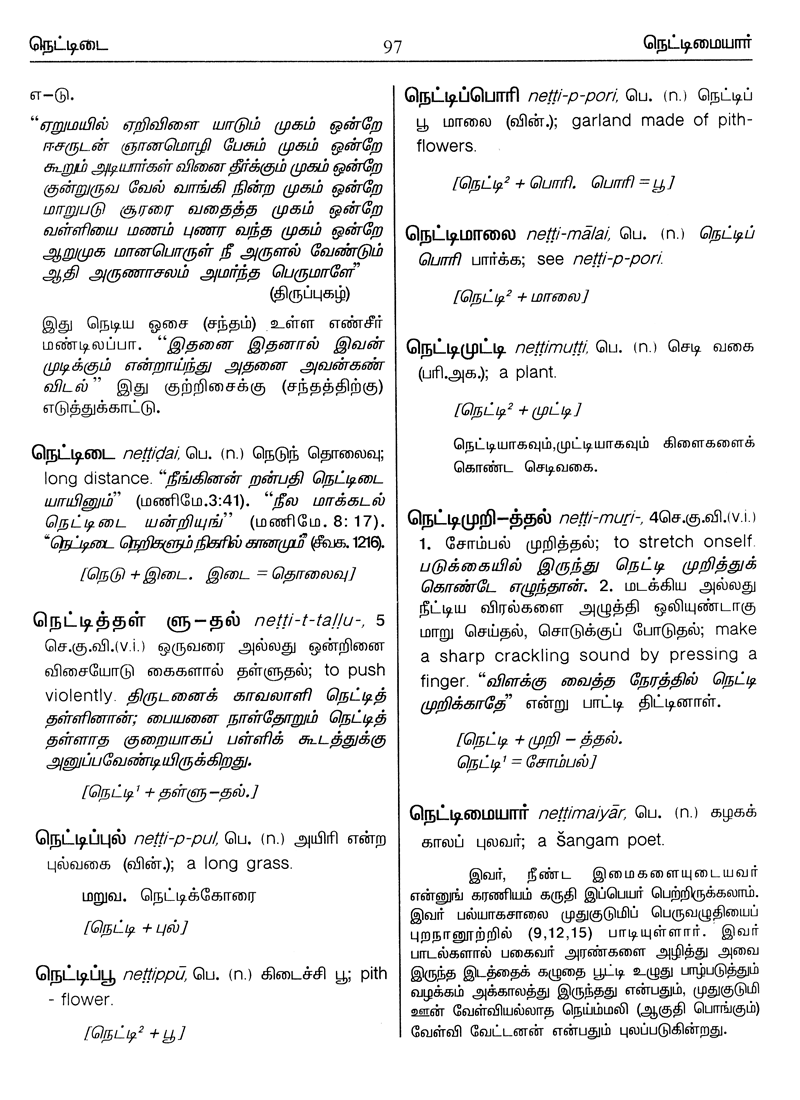 நெட்டிடை
97
நெட்டிமையார்
எ–டு.
“ஏறுமயில் ஏறிவிளை யாடும் முகம் ஒன்றே
ஈசருடன் ஞானமொழி பேசும் முகம் ஒன்றே
கூறும் அடியார்கள் வினை தீர்க்கும் முகம் ஒன்றே
குன்றுருவ வேல் வாங்கி நின்ற முகம் ஒன்றே
மாறுபடு சூரரை வதைத்த முகம் ஒன்றே
வள்ளியை மணம் புணர வந்த முகம் ஒன்றே
ஆறுமுக மானபொருள் நீ அருளல் வேண்டும்
ஆதி அருணாசலம் அமர்ந்த பெருமாளே”
(திருப்புகழ்)
இது நெடிய ஓசை (சந்தம்) உள்ள எண்சீர்
மண்டிலப்பா. “இதனை இதனால் இவன்
முடிக்கும் என்றாய்ந்து அதனை அவன்கண்
விடல்” இது குற்றிசைக்கு (சந்தத்திற்கு)
எடுத்துக்காட்டு.
நெட்டிடை neṭṭiḍai, பெ. (n.) நெடுந் தொலைவு;
long distance. “நீங்கினன் றன்பதி நெட்டிடை
யாயினும்” (மணிமே.3:41). “நீல மாக்கடல்
நெட்டிடை யன்றியுங்” (மணிமே. 8: 17).
“நெட்டிடை நெறிகளும் நிகரில் கானமும்” (சீவக. 1216).
[நெடு + இடை. இடை = தொலைவு]
நெட்டித்தள் ளு–தல் neṭṭi-t-taḷḷu-, 5
செ.கு.வி.(v.i.) ஒருவரை அல்லது ஒன்றினை
விசையோடு கைகளால் தள்ளுதல்; to push
violently. திருடனைக் காவலாளி நெட்டித்
தள்ளினான்; பையனை நாள்தோறும் நெட்டித்
தள்ளாத குறையாகப் பள்ளிக் கூடத்துக்கு
அனுப்பவேண்டியிருக்கிறது.
[நெட்டி¹ + தள்ளு–தல்.]
நெட்டிப்புல் neṭṭi-p-pul, பெ. (n.) அயிரி என்ற
புல்வகை (வின்.); a long grass.
மறுவ. நெட்டிக்கோரை
[நெட்டி + புல்]
நெட்டிப்பூ neṭṭippū, பெ. (n.) கிடைச்சி பூ; pith
- flower.
[நெட்டி² + பூ]
நெட்டிப்பொரி neṭṭi-p-pori, பெ. (n.) நெட்டிப்
பூ மாலை (வின்.); garland made of pith-
flowers.
[நெட்டி² + பொரி. பொரி = பூ]
நெட்டிமாலை neṭṭi-mālai, பெ. (n.) நெட்டிப்
பொரி பார்க்க; see neṭṭi-p-pori.
[நெட்டி² + மாலை]
நெட்டிமுட்டி neṭṭimuṭṭi, பெ. (n.) செடி வகை
(பரி.அக.); a plant.
[நெட்டி² + முட்டி]
நெட்டியாகவும்,முட்டியாகவும் கிளைகளைக்
கொண்ட செடிவகை.
நெட்டிமுறி–த்தல் neṭṭi-muṟi-, 4செ.கு.வி.(v.i.)
1. சோம்பல் முறித்தல்; to stretch onself.
படுக்கையில் இருந்து நெட்டி முறித்துக்
கொண்டே எழுந்தான். 2. மடக்கிய அல்லது
நீட்டிய விரல்களை அழுத்தி ஒலியுண்டாகு
மாறு செய்தல், சொடுக்குப் போடுதல்; make
a sharp crackling sound by pressing a
finger. “விளக்கு வைத்த நேரத்தில் நெட்டி
முறிக்காதே” என்று பாட்டி திட்டினாள்.
[நெட்டி + முறி – த்தல்.
நெட்டி¹ = சோம்பல்]
நெட்டிமையார் neṭṭimaiyār, பெ. (n.) கழகக்
காலப் புலவர்; a Šangam poet.
இவர், நீண்ட இமைகளையுடையவர்
என்னுங் கரணியம் கருதி இப்பெயர் பெற்றிருக்கலாம்.
இவர் பல்யாகசாலை முதுகுடுமிப் பெருவழுதியைப்
புறநானூற்றில் (9,12,15) பாடியுள்ளார். இவர்
பாடல்களால் பகைவர் அரண்களை அழித்து அவை
இருந்த இடத்தைக் கழுதை பூட்டி உழுது பாழ்படுத்தும்
வழக்கம் அக்காலத்து இருந்தது என்பதும், முதுகுடுமி
ஊன் வேள்வியல்லாத நெய்ம்மலி (ஆகுதி பொங்கும்)
வேள்வி வேட்டனன் என்பதும் புலப்படுகின்றது.